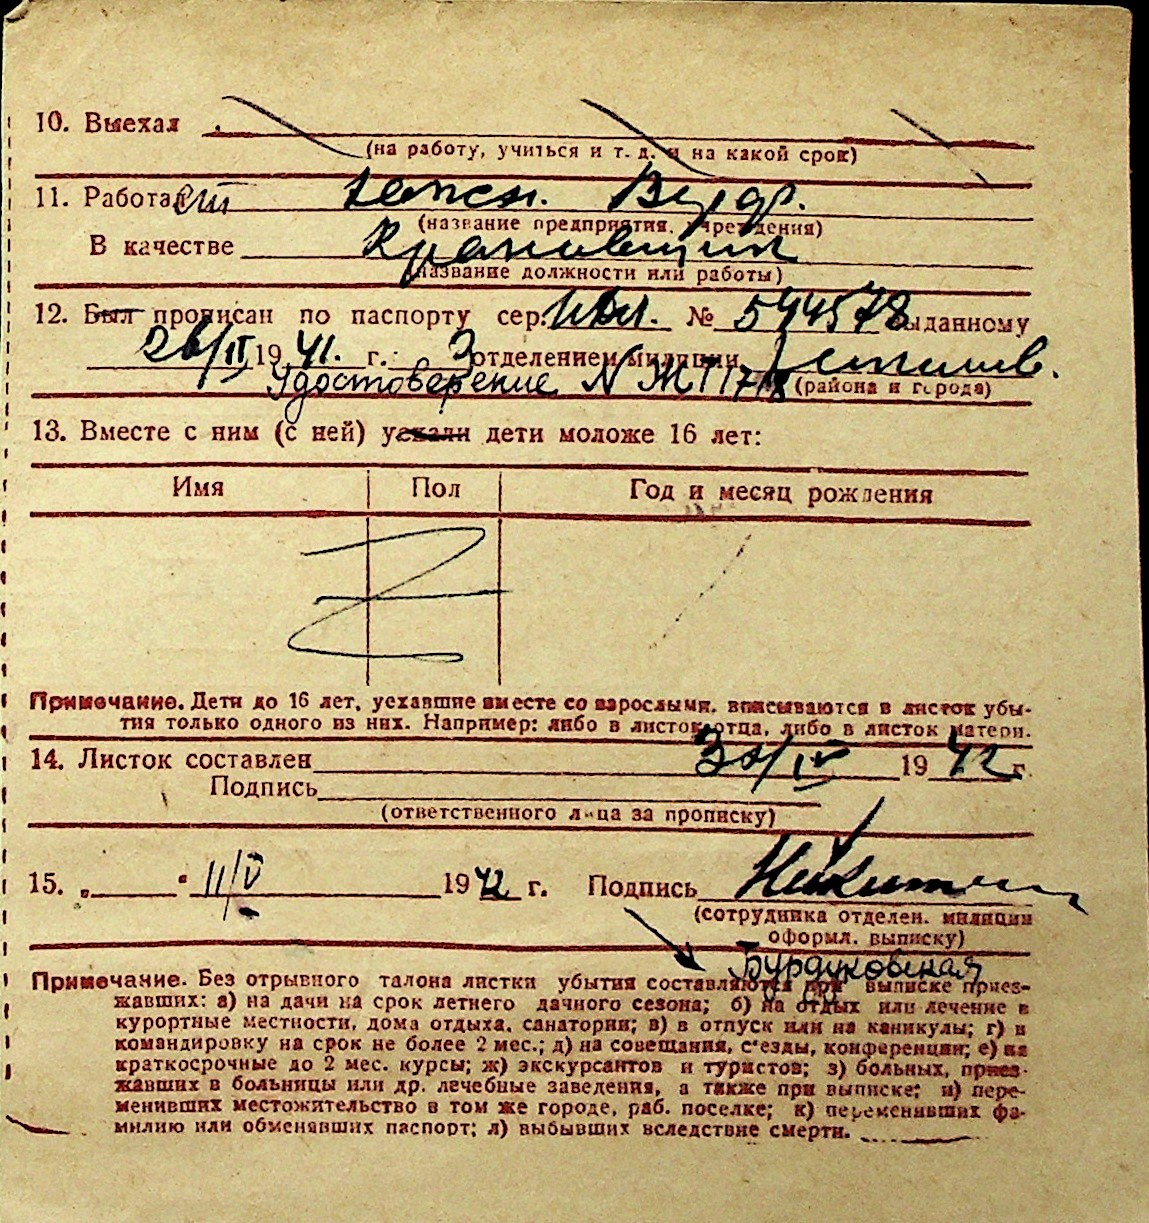 10. Выехал
(на работу, учиться и т. д. и на какой срок)
11. Работает
(название предприятия, учреждения)
В качестве Крановщик
(название должности или работы)
12. Был прописан по паспорту сер. № 594578 выданному
26/II 1941. г. 3 отделением милиции
Удостоверение N (района и города)
13. Вместе с ним (с ней) уехали дети моложе 16 лет:
Имя Пол Год и месяц рождения
Примечание. Дети до 16 лет, уехавшие вместе со взрослыми, вписываются в листок убы-
тия только одного из них. Например: либо в листок отца, либо в листок матери.
14. Листок составлен 30/IV 1942 г.
Подпись
(ответственного лица за прописку)
15. „ “ 11/V 1942 г. Подпись
(сотрудника отделен. милиции
оформл. выписку)
Бурдуковская
Примечание. Без отрывного талона листки убытия составляются при выписке приез-
жавших: а) на дачи на срок летнего дачного сезона; б) на отдых или лечение в
курортные местности, дома отдыха, санатории; в) в отпуск или на каникулы; г) в
командировку на срок не более 2 мес.; д) на совещания, с'езды, конференции; е) на
краткосрочные до 2 мес. курсы; ж) экскурсантов и туристов; з) больных, приез-
жавших в больницы или др. лечебные заведения, а также при выписке; и) пере-
менивших местожительство в том же городе, раб. поселке; к) переменивших фа-
милию или обменявших паспорт; л) выбывших вследствие смерти.